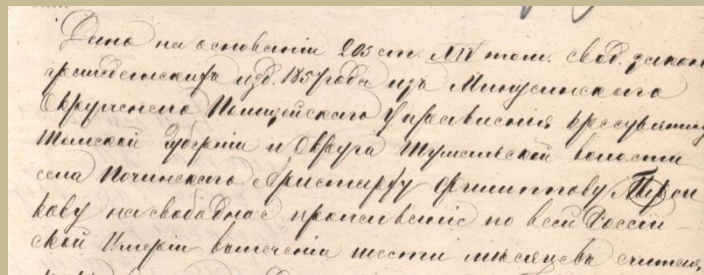 Дано на основании 205 ст. XIV том. Свод. закон
гражданскихъ изд. 1857 года изъ Минусинского
Окружнаго Полицейскаго Управления крестьянину
Томской Губернии и Округа волости
села Аристарху Филиппову
кову на свободное проживание по всей Россий-
ской Империи втечении шести месяцевъ считая